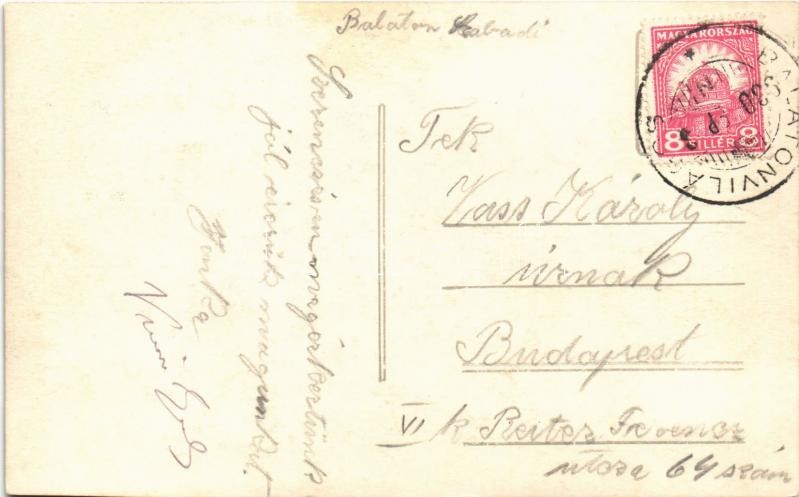 Balaton Szabadi
MAGYARORSZÁG
8 FILLÉR 8
BALATONVILÁGOS
930
Szerencsésen megérkeztünk
jól érezzük magunkat.
Tek
Vass Károly
úrnak
Budapest
VI k Reiter Ferencz
utcza 64 szám